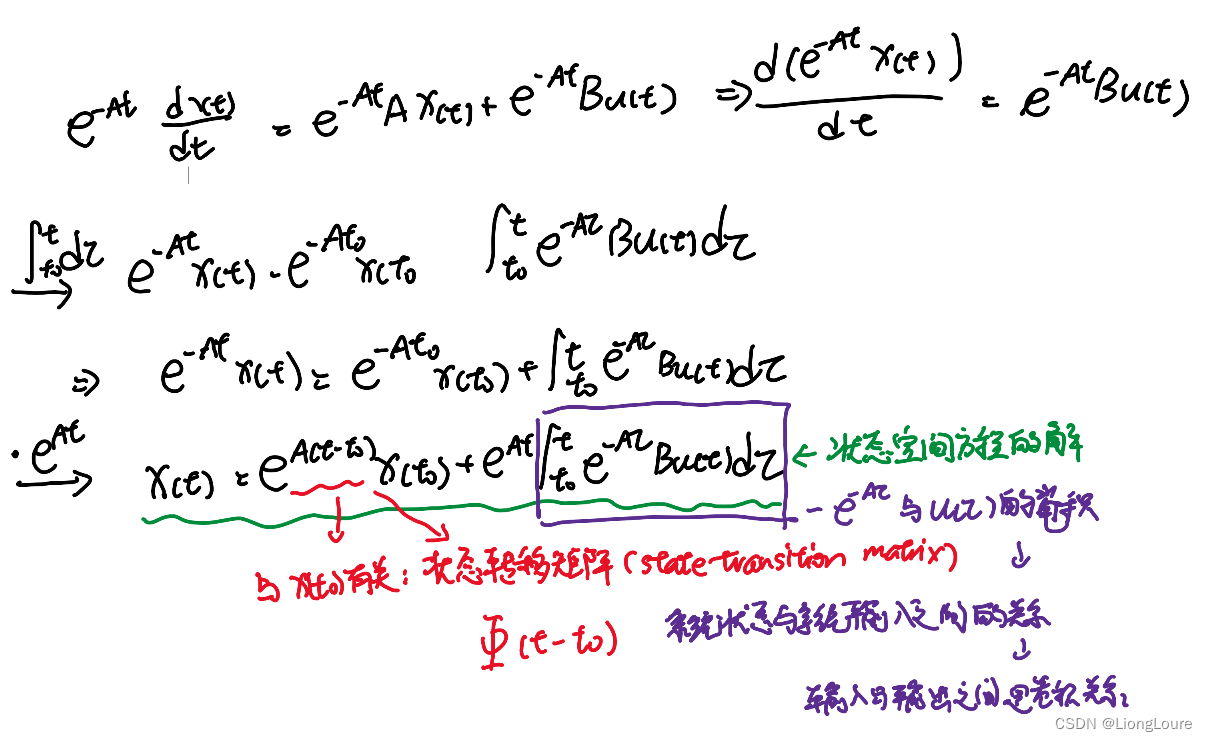 e^{-At} \frac{dx(t)}{dt} = e^{-At}Ax(t) + e^{-At}Bu(t) ⇒ \frac{d(e^{-At}x(t))}{dt} = e^{-At}Bu(t)
\int_{t_0}^{t}dτ → e^{-At}x(t) - e^{-At_0}x(t_0 \int_{t_0}^{t}e^{-Aτ}Bu(t)dτ
⇒ e^{-At}x(t) = e^{-At_0}x(t_0) + \int_{t_0}^{t}e^{-Aτ}Bu(t)dτ
·e^{At} → x(t) = e^{A(t-t_0)}x(t_0) + e^{At}\int_{t_0}^{t}e^{-Aτ}Bu(t)dτ ← 状态空间方程的解
- e^{-Aτ} 与 u(τ)的卷积
↓
与x(t_0)有关: 状态转移矩阵 (state-transition matrix)
Φ(t-t_0)
系统状态与系统输入之间的关系
↓
输入与输出之间 卷积关系
CSDN @LiongLoure